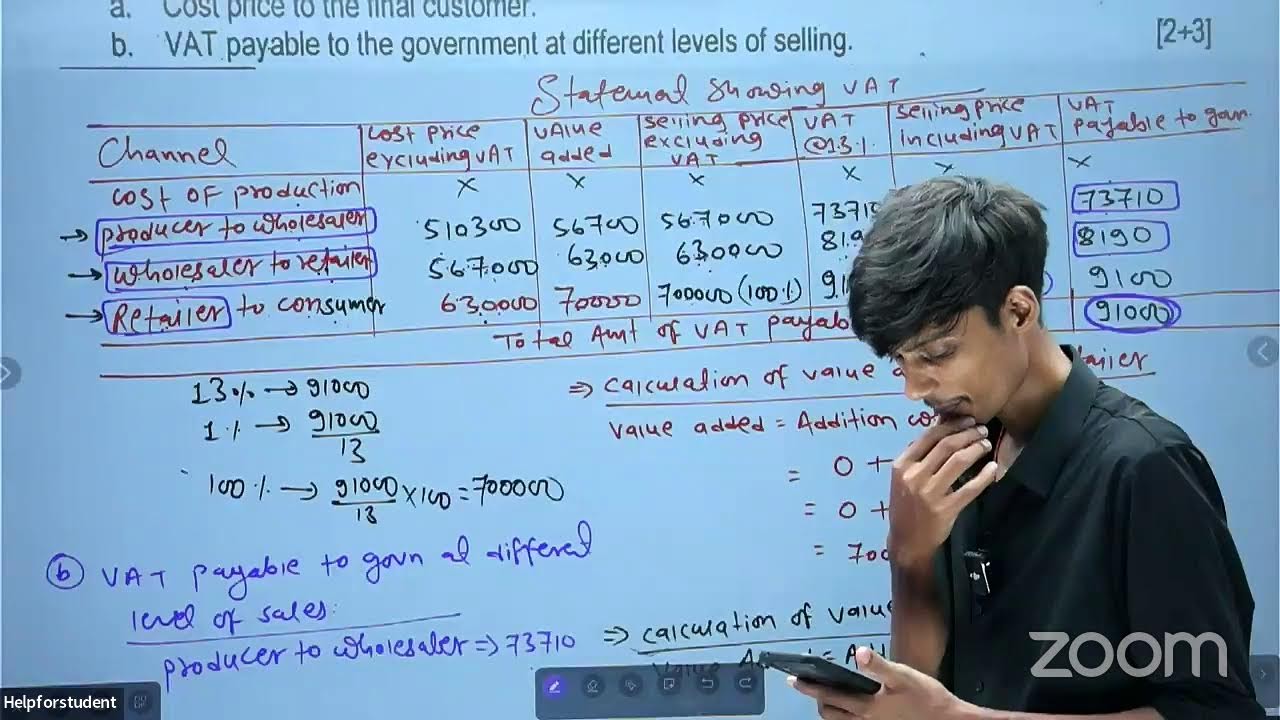 a. Cost price to the final customer.
b. VAT payable to the government at different levels of selling. [2+3]
Statemal Showing VAT
Channel
cost price excluding VAT
value added
selling price excluding VAT
VAT @13%
selling price including VAT
VAT payable to govn.
cost of production x x x x x x
→ producer to wholesaler 510300 56700 567000 7371 73710
→ wholesaler to retailer 567000 63000 630000 819 8190
→ Retailer to consumer 630000 70000 700000 (100%) 91 9100
Total Amt of VAT payab 91000
13% → 91000
1% → 91000/13
100% → 91000/13 × 100 = 700000
⇒ calculation of value a
value added = Addition co
= 0 +
= 0 +
= 700
ⓑ VAT payable to govn at differel
level of sales:
producer to wholesaler ⇒ 73710
⇒ calculation of value
zoom
Helpforstudent